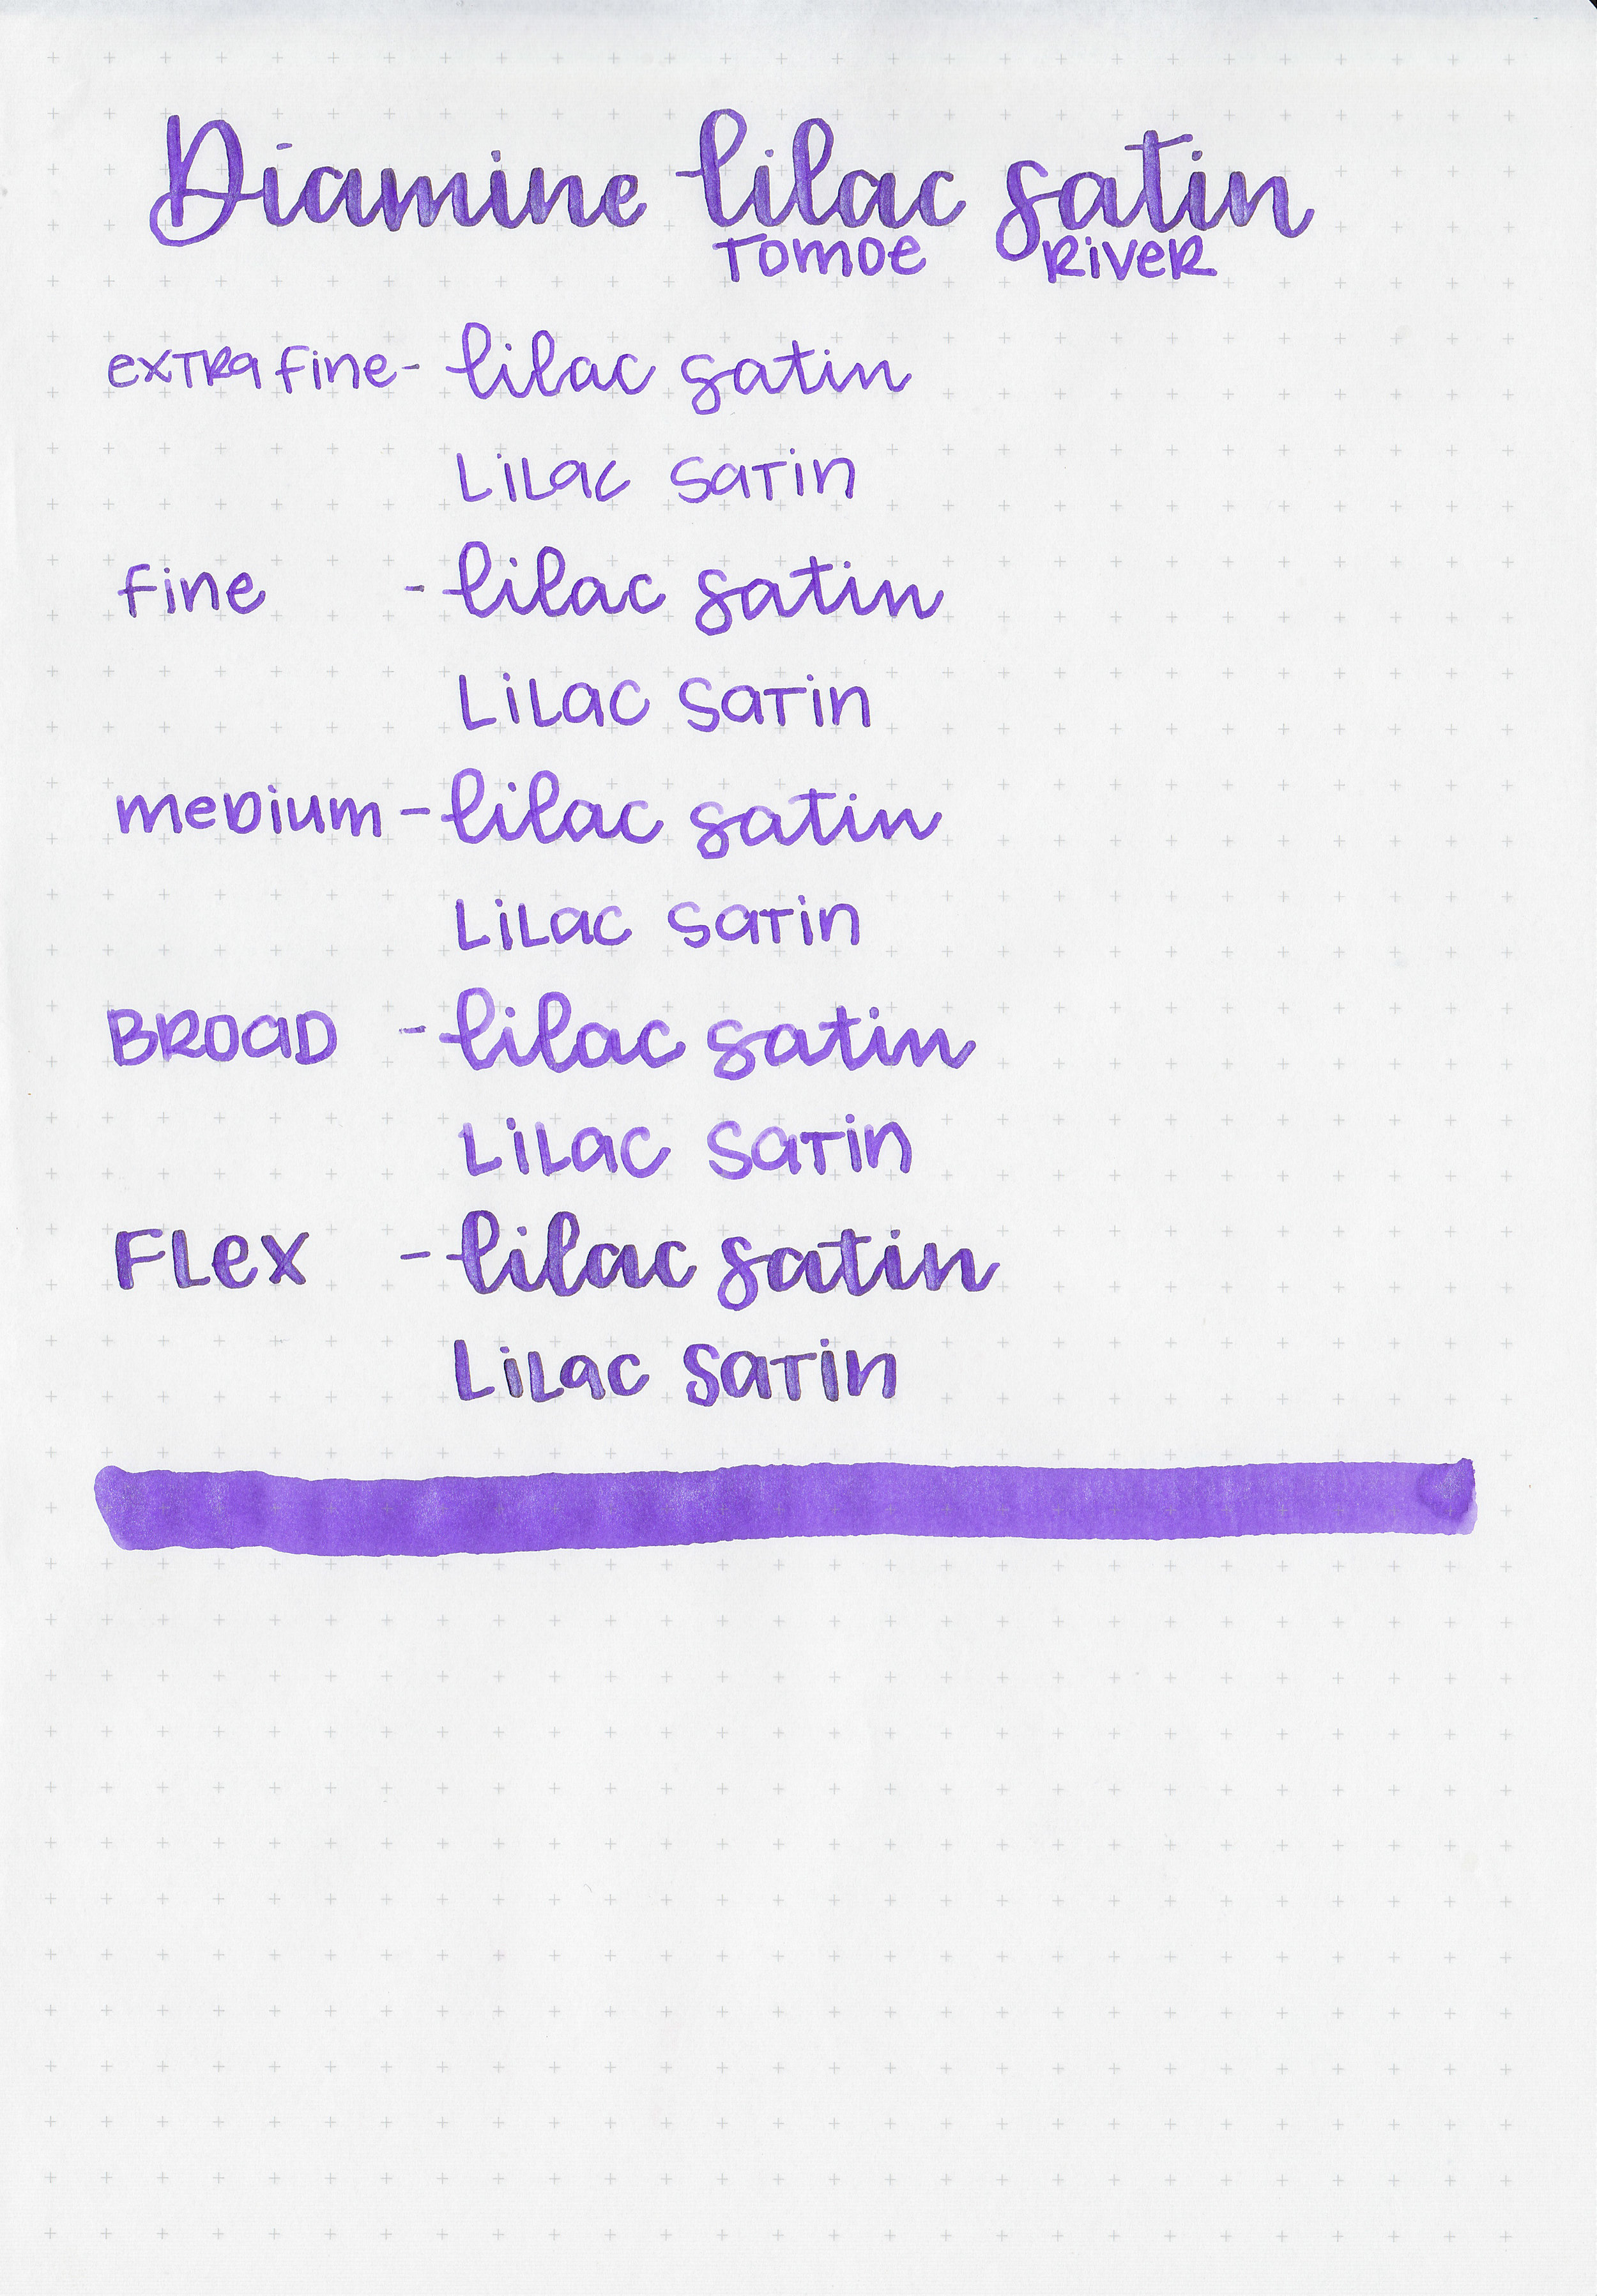 Diamine lilac satin
Tomoe River
extra fine- lilac satin
Lilac satin
fine - lilac satin
Lilac satin
medium - lilac satin
Lilac satin
Broad - lilac satin
Lilac satin
Flex - lilac satin
Lilac satin